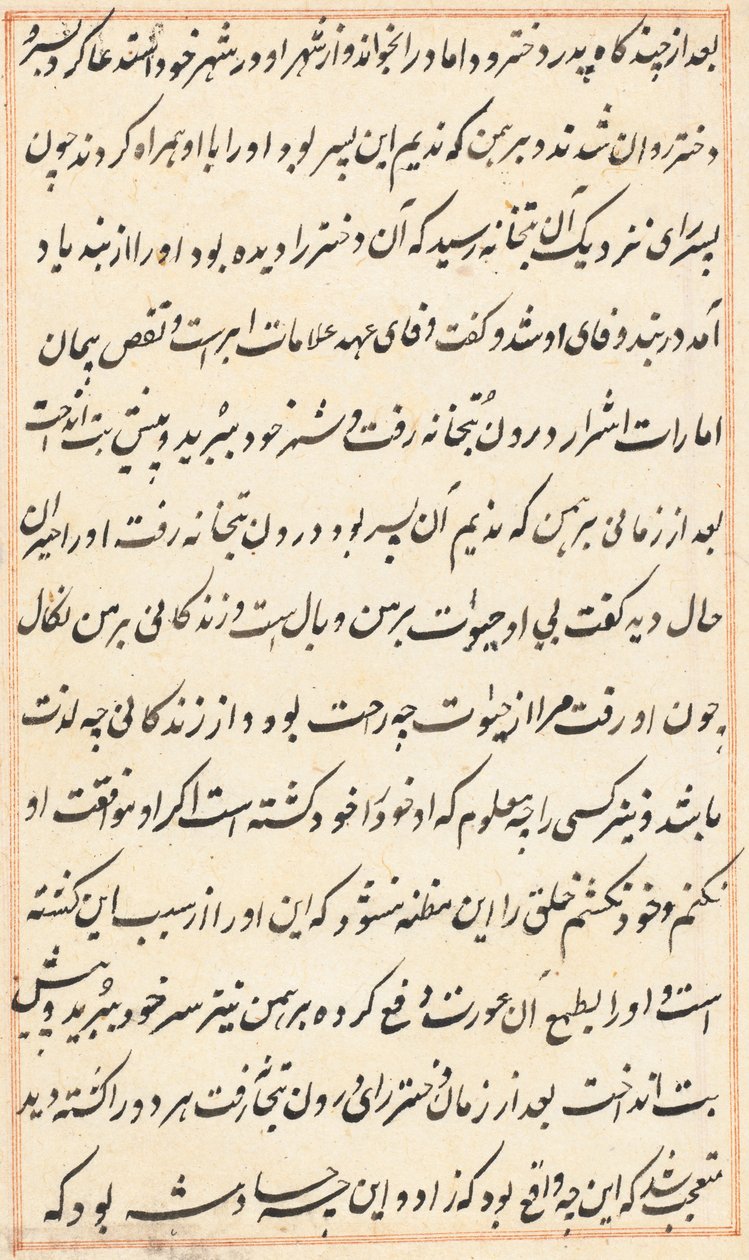 بعد از چند کاه پدر دختر و داماد را بخواند و از شهر او در شهر خود استدعا کرد پسر و
دختر روان شدند و برهمن که ندیم این پسر بود او را با او همراه کردند چون
پسر رای نزدیک آن بتخانه رسید که آن دختر را دیده بود او را از بند یاد
آمد در بند وفای او شد و کفت وفای عهد علامات ابرار است و نقص پیمان
امارات اشرار درون بتخانه رفت و سر خود ببرید و پیش بت انداخت
بعد از زمانی برهمن که ندیم آن پسر بود درون بتخانه رفت او را حیران
حال دید کفت بی او حیوت بر من وبال است و زندکانی بر من نکال
چون او رفت مرا از حیوت چه راحت بود و از زندکانی چه لذت
باشد و نیز کسی را چه معلوم که او خود را خود کشته است اکر او موافقت او
نکنم و خود نکشم خلق را این مظنه شود که این او را از سبب این کشته
است و او را بطمع آن عورت دفع کرده برهمن نیز سر خود ببرید و پیش
بت انداخت بعد از زمان دختر رای درون بتخانه رفت هر دو را کشته دید
متعجب شد که این چه واقع بود که زاد و این چه حادثه بود که